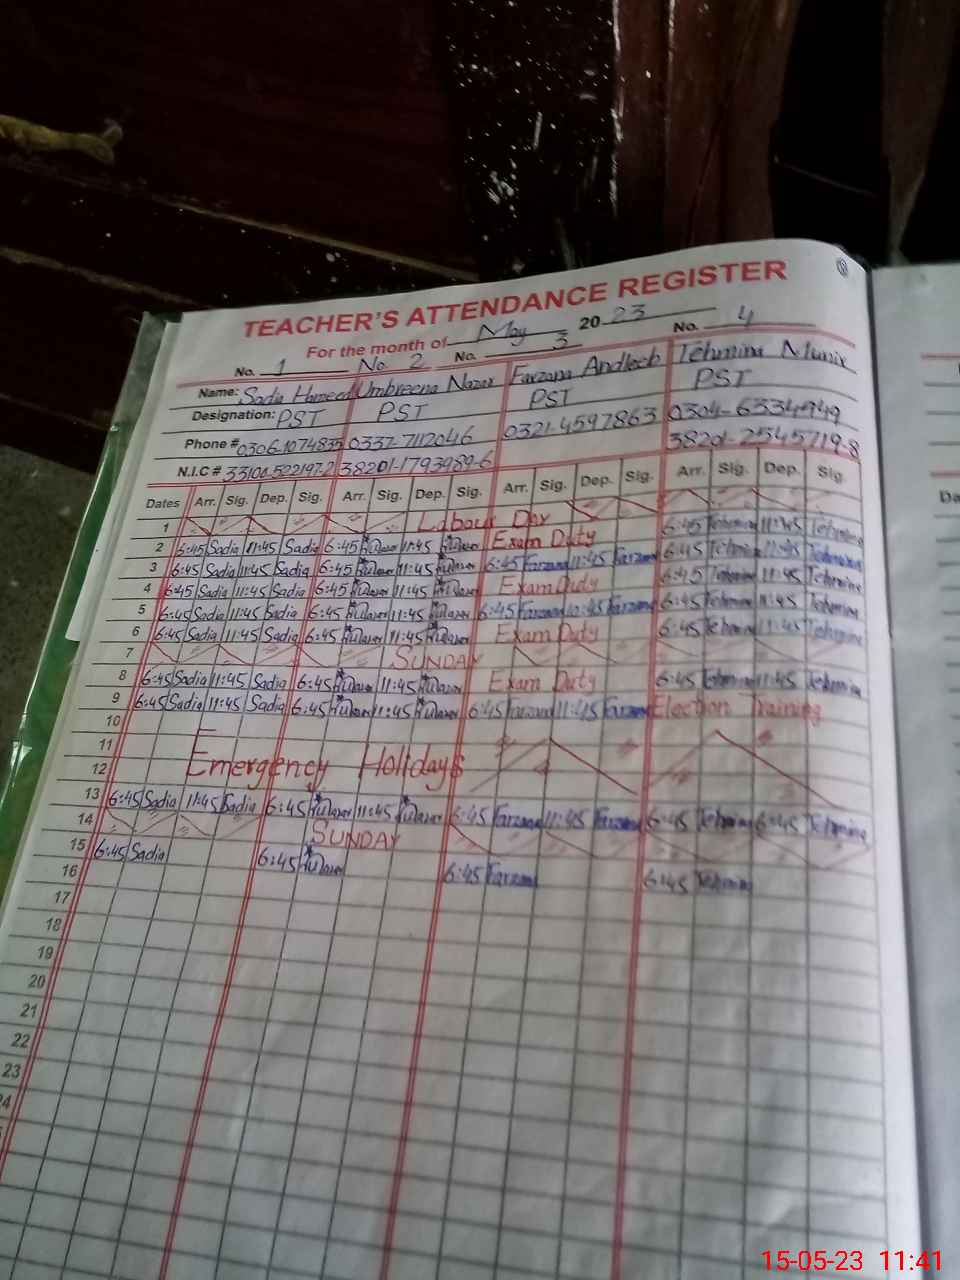 TEACHER'S ATTENDANCE REGISTER
For the month of May 2023
No. 1 No. 2 No. 3 No. 4
Name: Sadia Hameed Umbreena Nazar Farzana Andleeb Tehmina Munir
Designation: PST PST PST PST
Phone # 0306-1074835 0337-7112046 0321-4597863 0304-6334949
N.I.C # 33100-502197-2 38201-1793989-6 38201-2545719-8
Dates Arr. Sig. Dep. Sig. Arr. Sig. Dep. Sig. Arr. Sig. Dep. Sig. Arr. Sig. Dep. Sig.
1 Labour Day
2 6:45 Sadia 11:45 Sadia 6:45 11:45 Exam Duty 6:45 Tehmina 11:45 Tehmina
3 6:45 Sadia 11:45 Sadia 6:45 11:45 6:45 Farzana 11:45 Farzana 6:45 Tehmina 11:45 Tehmina
4 6:45 Sadia 11:45 Sadia 6:45 11:45 Exam Duty 6:45 Tehmina 11:45 Tehmina
5 6:45 Sadia 11:45 Sadia 6:45 11:45 6:45 Farzana Farzana 6:45 Tehmina 11:45 Tehmina
6 6:45 Sadia 11:45 Sadia 6:45 11:45 Exam Duty 6:45 Tehmina 11:45 Tehmina
7 SUNDAY
8 6:45 Sadia 11:45 Sadia 6:45 11:45 Exam Duty 6:45 Tehmina 11:45 Tehmina
9 6:45 Sadia 11:45 Sadia 6:45 11:45 6:45 Farzana 11:45 Farzana Election Training
10
11
12 Emergency Holidays
13 6:45 Sadia 11:45 Sadia 6:45 11:45 6:45 Farzana 11:45 Farzana 6:45 Tehmina 6:45 Tehmina
14 SUNDAY
15 6:45 Sadia 6:45 6:45 Farzana 6:45 Tehmina
16
17
18
19
20
21
22
23
15-05-23 11:41